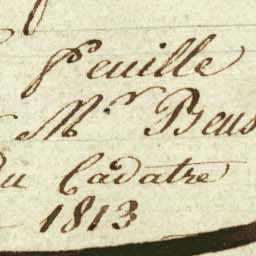 feuille
Mr Beus
Du Cadatre
1813